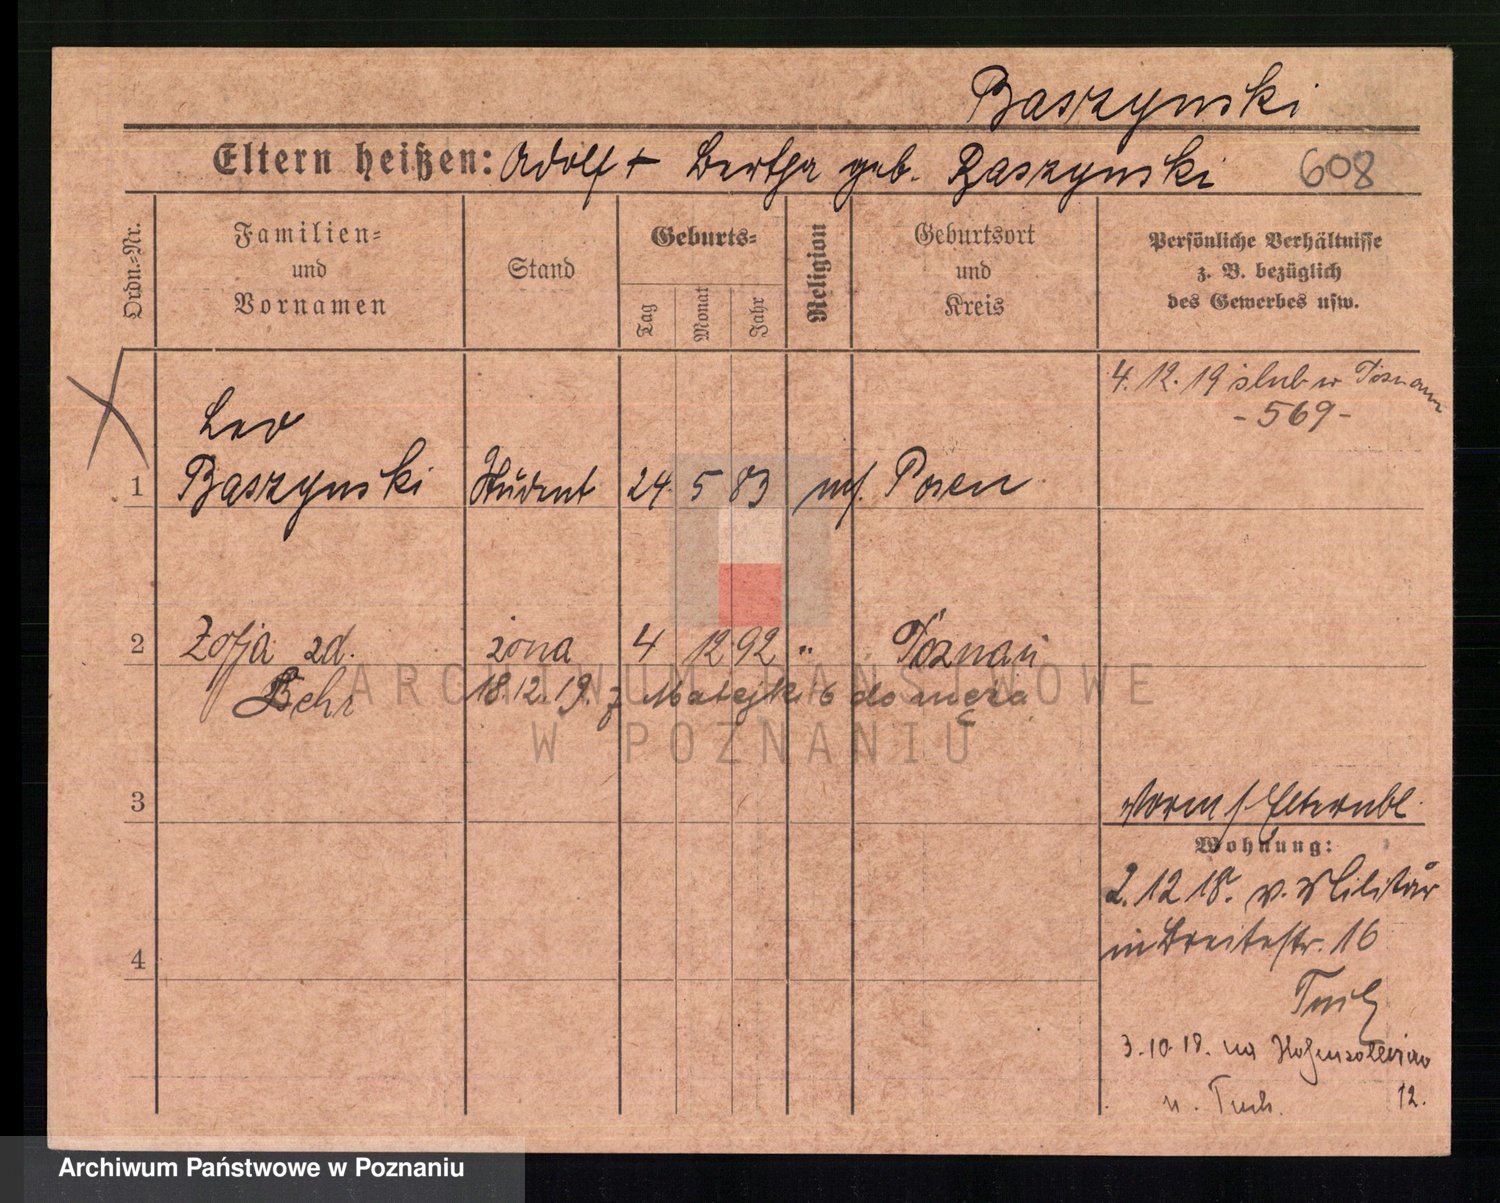 Baszynski
Eltern heißen: Adolf + Bertha geb. Baszynski 608
Ordn.-Nr.
Familien-
und
Vornamen
Stand
Geburts-
Tag
Monat
Jahr
Religion
Geburtsort
und
Kreis
Persönliche Verhältnisse
z. B. bezüglich
des Gewerbes usw.
4. 12. 19 ślub w Poznaniu
- 569 -
Leo
1 Baszynski Student 24. 5 83 Posen
2 Zofja zd. żona 4 12 92 " Poznań
Behr 18.12.19. z Matejki 6 do męża
3
4
Elternbl.
Wohnung:
2. 12 18. v. Militär
in Breitestr. 16
3.10.19. na
12.
ARCHIWUM PAŃSTWOWE
W POZNANIU
Archiwum Państwowe w Poznaniu